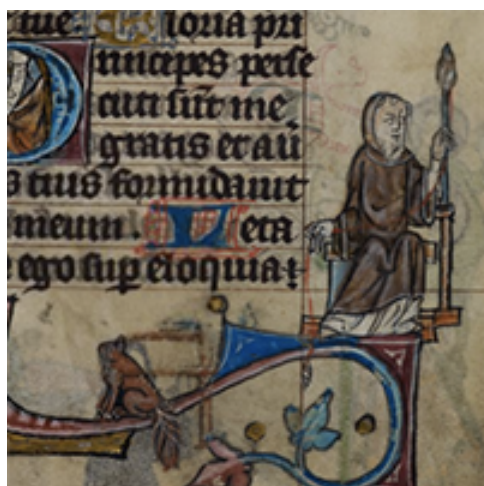 tue. Gloria pri
Principes perse
cuti sūt me
gratis et a ū
s tuis formidauit
meum. Leta
ego sup̄ eloquia t